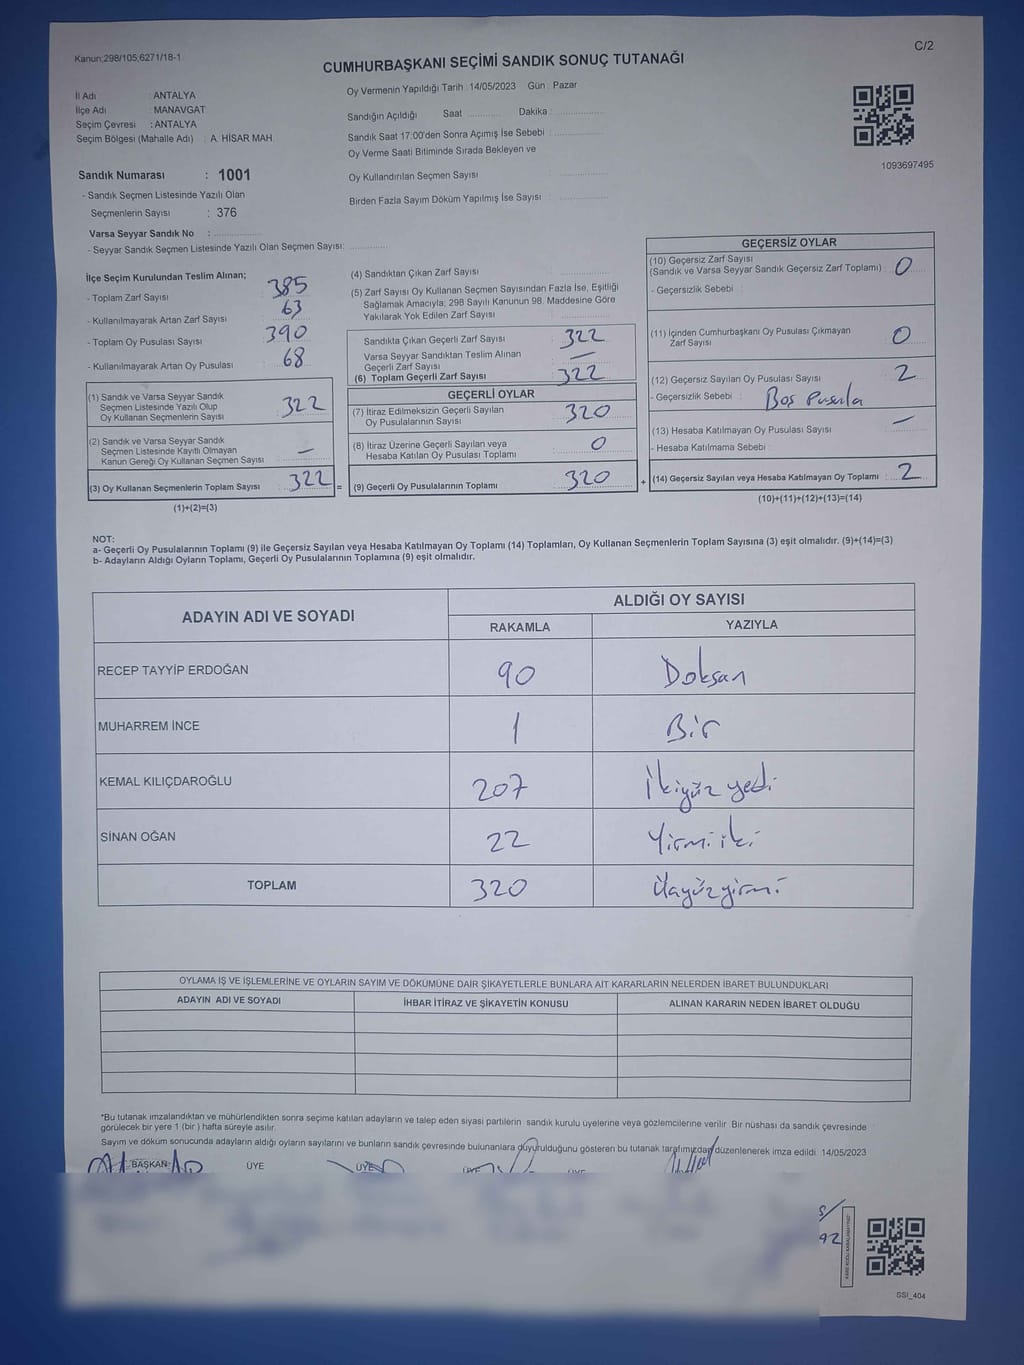 Kanun;298/105;6271/18-1
C/2
CUMHURBAŞKANI SEÇİMİ SANDIK SONUÇ TUTANAĞI
İl Adı : ANTALYA
İlçe Adı : MANAVGAT
Seçim Çevresi : ANTALYA
Seçim Bölgesi (Mahalle Adı) : A. HİSAR MAH.
Sandık Numarası : 1001
- Sandık Seçmen Listesinde Yazılı Olan
Seçmenlerin Sayısı : 376
Varsa Seyyar Sandık No :
- Seyyar Sandık Seçmen Listesinde Yazılı Olan Seçmen Sayısı:
Oy Vermenin Yapıldığı Tarih : 14/05/2023 Gün : Pazar
Sandığın Açıldığı Saat Dakika :
Sandık Saat 17:00'den Sonra Açımış İse Sebebi :
Oy Verme Saati Bitiminde Sırada Bekleyen ve
Oy Kullandırılan Seçmen Sayısı :
Birden Fazla Sayım Döküm Yapılmış İse Sayısı :
1093697495
İlçe Seçim Kurulundan Teslim Alınan;
- Toplam Zarf Sayısı : 385
- Kullanılmayarak Artan Zarf Sayısı : 63
- Toplam Oy Pusulası Sayısı : 390
- Kullanılmayarak Artan Oy Pusulası : 68
(1) Sandık ve Varsa Seyyar Sandık
Seçmen Listesinde Yazılı Olup
Oy Kullanan Seçmenlerin Sayısı : 322
(2) Sandık ve Varsa Seyyar Sandık
Seçmen Listesinde Kayıtlı Olmayan
Kanun Gereği Oy Kullanan Seçmen Sayısı : —
(3) Oy Kullanan Seçmenlerin Toplam Sayısı : 322 =
(1)+(2)=(3)
(4) Sandıktan Çıkan Zarf Sayısı :
(5) Zarf Sayısı Oy Kullanan Seçmen Sayısından Fazla İse, Eşitliği
Sağlamak Amacıyla; 298 Sayılı Kanunun 98. Maddesine Göre
Yakılarak Yok Edilen Zarf Sayısı :
Sandıkta Çıkan Geçerli Zarf Sayısı : 322
Varsa Seyyar Sandıktan Teslim Alınan
Geçerli Zarf Sayısı : —
(6) Toplam Geçerli Zarf Sayısı : 322
GEÇERLİ OYLAR
(7) İtiraz Edilmeksizin Geçerli Sayılan
Oy Pusulalarının Sayısı : 320
(8) İtiraz Üzerine Geçerli Sayılan veya
Hesaba Katılan Oy Pusulası Toplamı : 0
(9) Geçerli Oy Pusulalarının Toplamı : 320 +
GEÇERSİZ OYLAR
(10) Geçersiz Zarf Sayısı
(Sandık ve Varsa Seyyar Sandık Geçersiz Zarf Toplamı) : 0
- Geçersizlik Sebebi :
(11) İçinden Cumhurbaşkanı Oy Pusulası Çıkmayan
Zarf Sayısı : 0
(12) Geçersiz Sayılan Oy Pusulası Sayısı : 2
- Geçersizlik Sebebi : Boş Pusula
(13) Hesaba Katılmayan Oy Pusulası Sayısı : —
- Hesaba Katılmama Sebebi :
(14) Geçersiz Sayılan veya Hesaba Katılmayan Oy Toplamı : 2
(10)+(11)+(12)+(13)=(14)
NOT:
a- Geçerli Oy Pusulalarının Toplamı (9) ile Geçersiz Sayılan veya Hesaba Katılmayan Oy Toplamı (14) Toplamları, Oy Kullanan Seçmenlerin Toplam Sayısına (3) eşit olmalıdır. (9)+(14)=(3)
b- Adayların Aldığı Oyların Toplamı, Geçerli Oy Pusulalarının Toplamına (9) eşit olmalıdır.
ADAYIN ADI VE SOYADI
ALDIĞI OY SAYISI
RAKAMLA YAZIYLA
RECEP TAYYİP ERDOĞAN 90 Doksan
MUHARREM İNCE 1 Bir
KEMAL KILIÇDAROĞLU 207 İkiyüz yedi
SİNAN OĞAN 22 Yirmi iki
TOPLAM 320 Üçyüzyirmi
OYLAMA İŞ VE İŞLEMLERİNE VE OYLARIN SAYIM VE DÖKÜMÜNE DAİR ŞİKAYETLERLE BUNLARA AİT KARARLARIN NELERDEN İBARET BULUNDUKLARI
ADAYIN ADI VE SOYADI İHBAR İTİRAZ VE ŞİKAYETİN KONUSU ALINAN KARARIN NEDEN İBARET OLDUĞU
*Bu tutanak imzalandıktan ve mühürlendikten sonra seçime katılan adayların ve talep eden siyasi partilerin sandık kurulu üyelerine veya gözlemcilerine verilir. Bir nüshası da sandık çevresinde
görülecek bir yere 1 (bir ) hafta süreyle asılır.
Sayım ve döküm sonucunda adayların aldığı oyların sayılarını ve bunların sandık çevresinde bulunanlara duyurulduğunu gösteren bu tutanak tarafımızdan düzenlenerek imza edildi. 14/05/2023
BAŞKAN ÜYE ÜYE ÜYE ÜYE
92
SSI_404